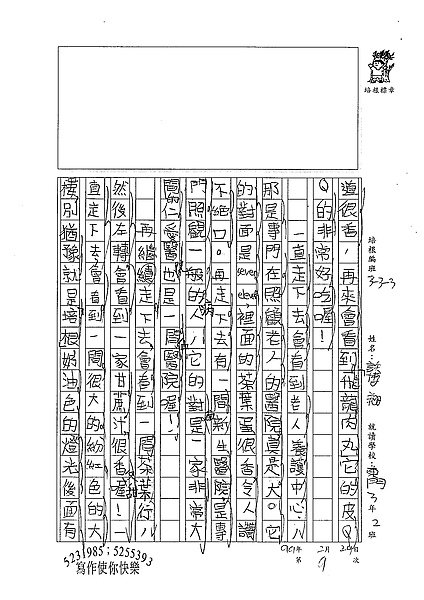 道很香,再來會看到飛龍肉丸它的皮QQ
Q的非常好吃喔!
一直走下去會看到老人養護中心,
那是專門在照顧老人的醫院真是大。它
的對面是seven eleven裡面的茶葉蛋很香令人讚
不絕口。再走下去有一間新生醫院是專
門照顧一般的病人,它的對面是一家非常大
間的仁愛醫也是一間醫院喔!
再繼續走下去會看到一間茶葉行,
然後左轉會看到一家甘蔗汁很香喔!一
直走下去會看到一間很大的粉紅色的大
樓別猶豫就是培根奶油色的燈光後面有
培根標章
培根編班
3-3-3
姓名:
就讀學校:
3年2班
第
9
次
5231985;5255393
寫作使你快樂